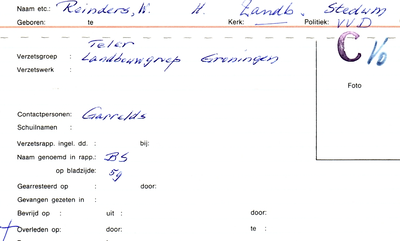 Naam etc.: Reinders, K. H. Landb. Stedum
Geboren: te Kerk: Politiek: V.V.D
Teler
Verzetsgroep : Landbouwgroep Groningen
Verzetswerk
C Vo
Foto
Contactpersonen: Garrelds
Schuilnaam :
Verzetsrapp. ingel. dd. : bij:
Naam genoemd in rapp.: BS
op bladzijde: 59
Gearresteerd op : door:
Gevangen gezeten in :
Bevrijd op : uit : door:
Overleden op: door: te :